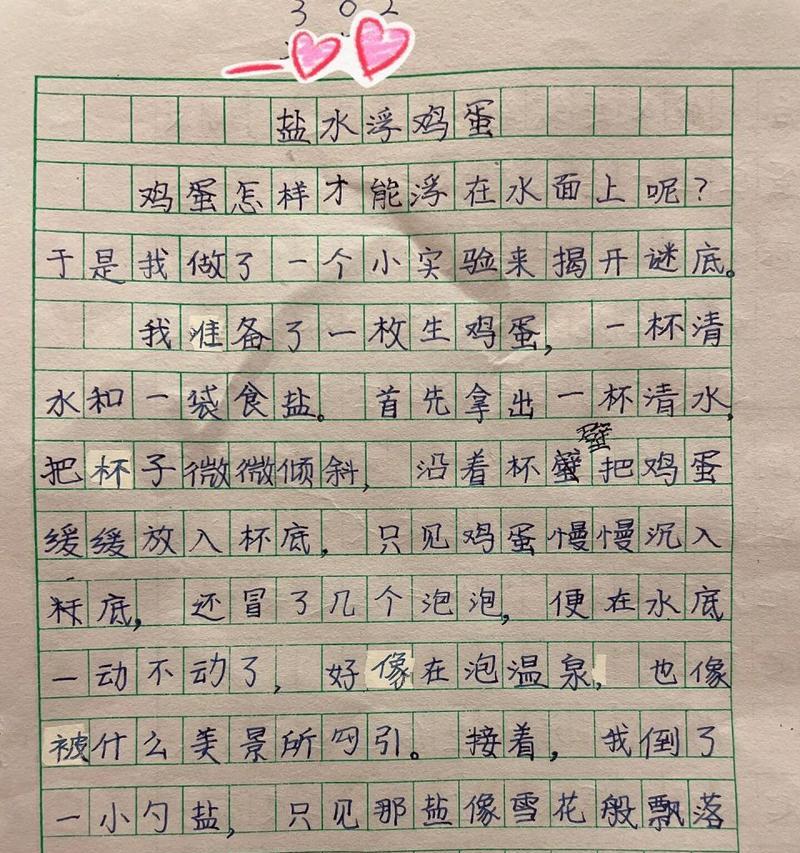 302
盐水浮鸡蛋
鸡蛋怎样才能浮在水面上呢？
于是我做了一个小实验来揭开谜底。
我准备了一枚生鸡蛋，一杯清
水和一袋食盐。首先拿出一杯清水，
壁
把杯子微微倾斜，沿着杯把鸡蛋
缓缓放入杯底，只见鸡蛋慢慢沉入
杯底，还冒了几个泡泡，便在水底
一动不动了，好像在泡温泉，也像
被什么美景所勾引。接着，我倒了
一小勺盐，只见那盐像雪花般飘落